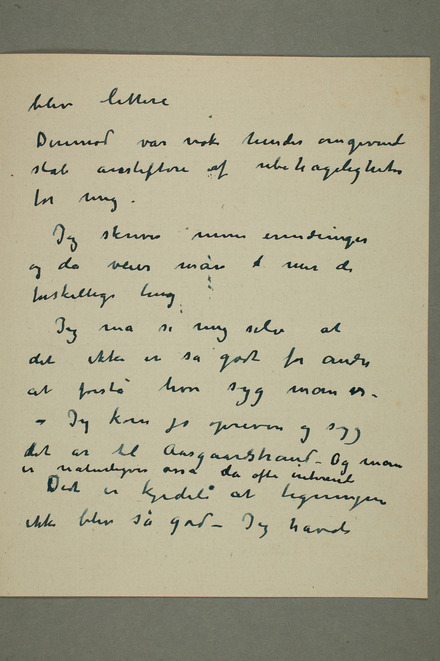 blev lettere
Derimod var nok hendes omgivend
skab anstiftere af ubehageligheder
for mig.
Jeg skriver mine erindringer
og da veier man nu de
forskellige ting
Jeg må si mig selv at
det ikke er så godt for andre
at forstå hvor syg man er.
– Jeg kom jo opreven og syg
det år til Aasgaardstrand – Og man
er naturligvis også da ofte
Det er kjedeli at tegningen
ikke blev så god – Jeg havde